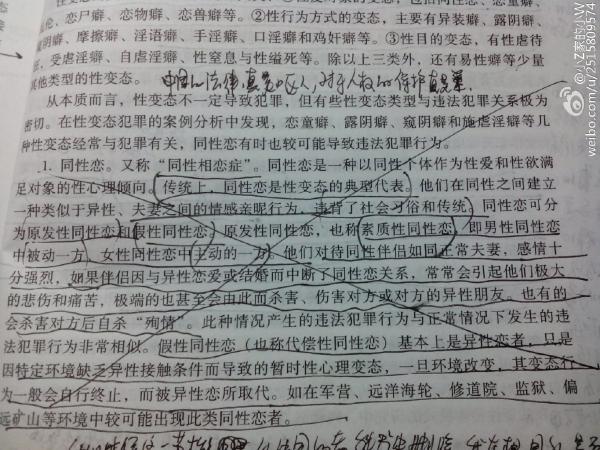 伦、恋尸癖、恋物癖、恋兽癖等。②性行为方式的变态，主要有异装癖、露阴癖、
阴癖、摩擦癖、淫语癖、手淫癖、口淫癖和鸡奸癖等。③性目的变态，有性虐待
、受虐淫癖、自虐淫癖、性窒息与性缢死等。除以上三类外，还有易性癖等少量
其他类型的性变态。 中国的法律
从本质而言，性变态不一定导致犯罪，但有些性变态类型与违法犯罪关系极为
密切。在性变态犯罪的案例分析中发现，恋童癖、露阴癖、窥阴癖和施虐淫癖等几
种性变态经常与犯罪有关，同性恋有时也较可能导致违法犯罪行为。
1. 同性恋。又称“同性相恋症”。同性恋是一种以同性个体作为性爱和性欲满
足对象的性心理倾向。传统上，同性恋是性变态的典型代表。他们在同性之间建立
一种类似于异性、夫妻之间的情感亲昵行为，违背了社会习俗和传统。同性恋可分
为原发性同性恋和假性同性恋。原发性同性恋，也称素质性同性恋，即男性同性恋
中被动一方、女性同性恋中主动的一方。他们对待同性伴侣如同正常夫妻，感情十
分强烈，如果伴侣因与异性恋爱或结婚而中断了同性恋关系，常常会引起他们极大
的悲伤和痛苦，极端的也甚至会由此而杀害、伤害对方或对方的异性朋友。也有的
会杀害对方后自杀“殉情”。此种情况产生的违法犯罪行为与正常情况下发生的违
法犯罪行为非常相似。假性同性恋（也称代偿性同性恋）基本上是异性恋者，只是
因特定环境缺乏异性接触条件而导致的暂时性心理变态，一旦环境改变，其变态行
为一般会自行终止，而被异性恋所取代。如在军营、远洋海轮、修道院、监狱、偏
远矿山等环境中较可能出现此类同性恋者。
@小Z家的小W
weibo.com/u/2515809574